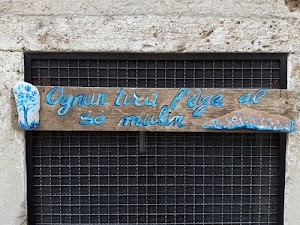 Ognun tira l'aga al
so mulin